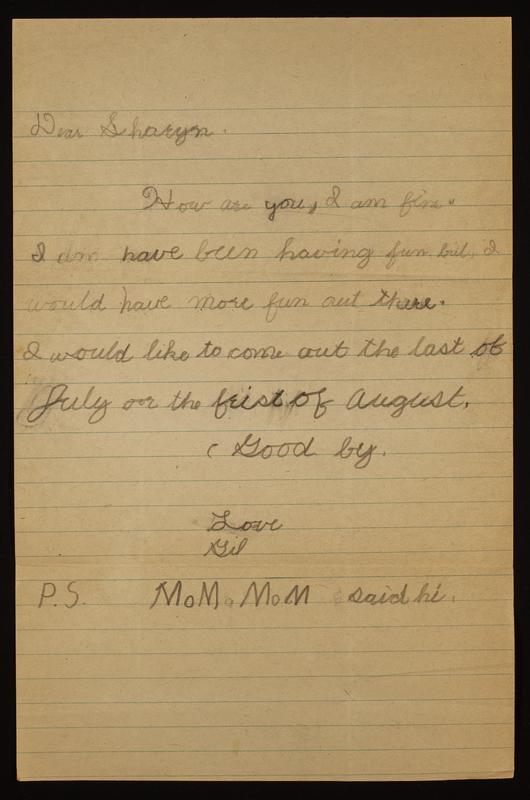 Dear Sharyn.
How are you, I am fine.
I am have been having fun but, I
would have more fun out there.
I would like to come out the last of
July or the feist of August.
( Good by.
Love
Gil
P.S. MoM. MoM said hi.